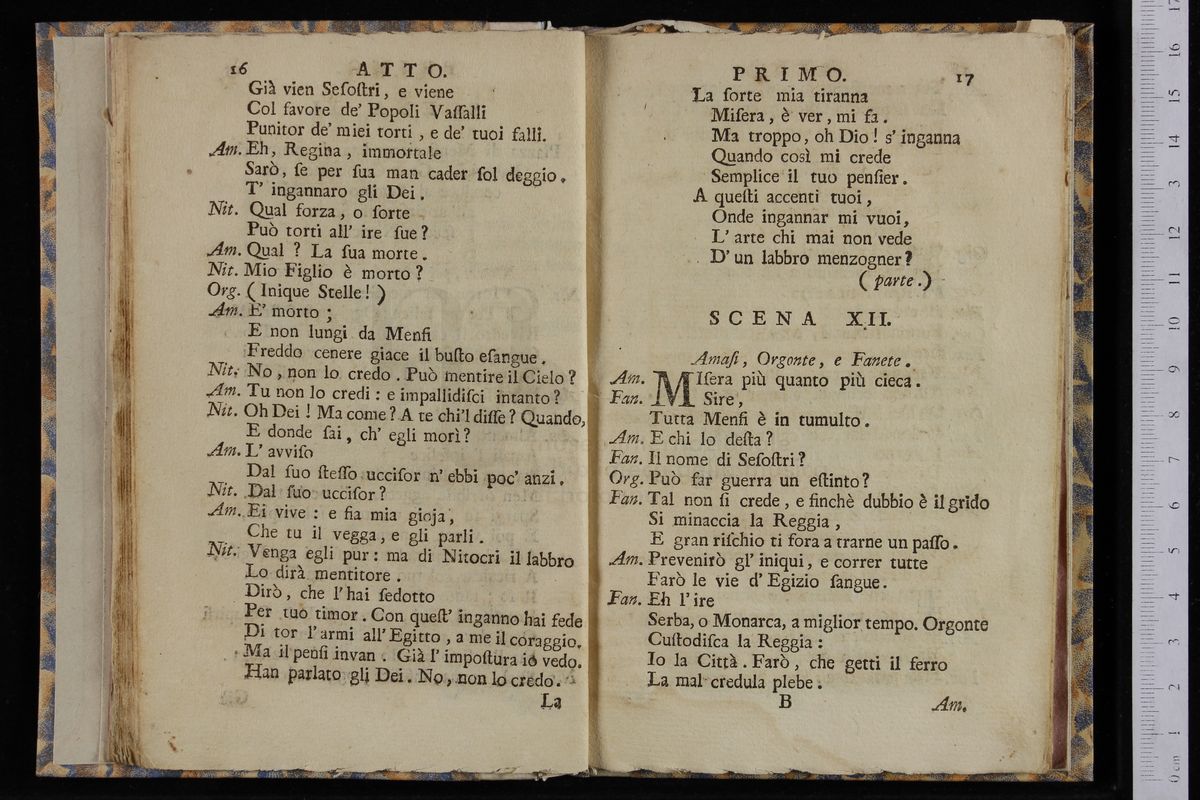 16 ATTO.
Già vien Seſoſtri, e viene
Col favore de' Popoli Vaſſalli
Punitor de' miei torti, e de' tuoi falli.
Am. Eh, Regina, immortale
Sarò, ſe per ſua man cader ſol deggio.
T' ingannaro gli Dei.
Nit. Qual forza, o ſorte
Può torti all' ire ſue?
Am. Qual? La ſua morte.
Nit. Mio Figlio è morto?
Org. (Inique Stelle!)
Am. E' morto;
E non lungi da Menfi
Freddo cenere giace il buſto eſangue.
Nit. No, non lo credo. Può mentire il Cielo?
Am. Tu non lo credi: e impallidiſci intanto?
Nit. Oh Dei! Ma come? A te chi'l diſſe? Quando,
E donde ſai, ch' egli morì?
Am. L' avviſo
Dal ſuo ſteſſo ucciſor n' ebbi poc' anzi.
Nit. Dal ſuo ucciſor?
Am. Ei vive: e fia mia gioja,
Che tu il vegga, e gli parli.
Nit. Venga egli pur: ma di Nitocri il labbro
Lo dirà mentitore.
Dirò, che l'hai ſedotto
Per tuo timor. Con queſt' inganno hai fede
Di tor l'armi all'Egitto, a me il coraggio.
Ma il penſi invan. Già l' impoſtura io vedo.
Han parlato gli Dei. No, non lo credo.
La
PRIMO. 17
La ſorte mia tiranna
Miſera, è ver, mi fa.
Ma troppo, oh Dio! s' inganna
Quando così mi crede
Semplice il tuo penſier.
A queſti accenti tuoi,
Onde ingannar mi vuoi,
L' arte chi mai non vede
D' un labbro menzogner?
(parte.)
SCENA XII.
Amaſi, Orgonte, e Fanete.
Am. MIſera più quanto più cieca.
Fan. Sire,
Tutta Menfi è in tumulto.
Am. E chi lo deſta?
Fan. Il nome di Seſoſtri?
Org. Può far guerra un eſtinto?
Fan. Tal non ſi crede, e finchè dubbio è il grido
Si minaccia la Reggia,
E gran riſchio ti fora a trarne un paſſo.
Am. Prevenirò gl' iniqui, e correr tutte
Farò le vie d' Egizio ſangue.
Fan. Eh l'ire
Serba, o Monarca, a miglior tempo. Orgonte
Cuſtodiſca la Reggia:
Io la Città. Farò, che getti il ferro
La mal credula plebe.
B Am.
0 cm 1 2 3 4 5 6 7 8 9 10 11 12 13 14 15 16 17